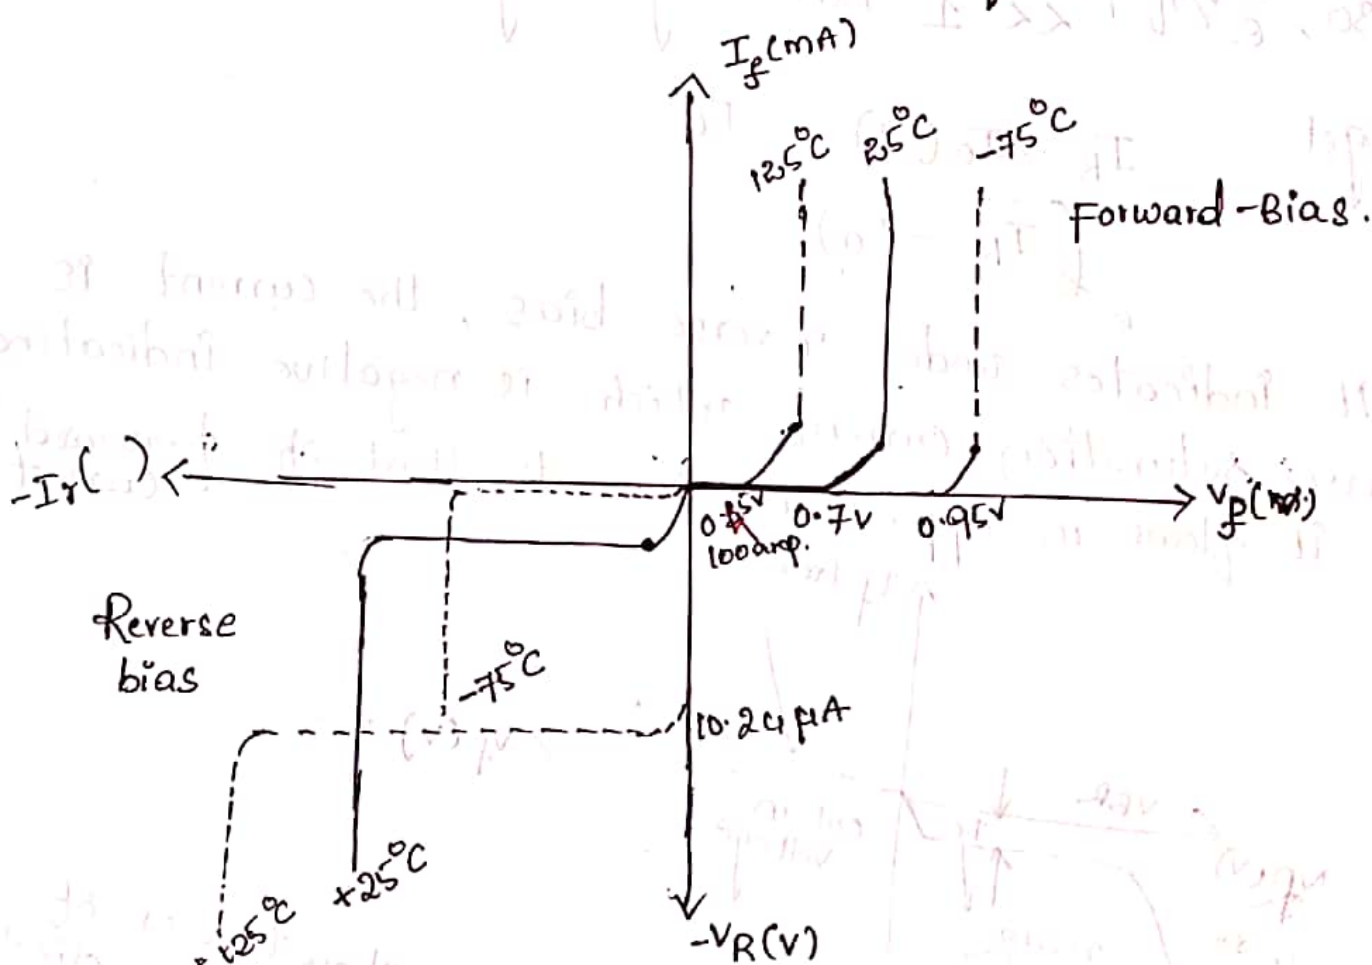 I_f(mA)
125°C
25°C
-75°C
Forward-Bias.
-I_r( )
0.7V
0.95V
V_f
100 amp.
Reverse
bias
-75°C
10.24 µA
+25°C
+25°C
-V_R(V)